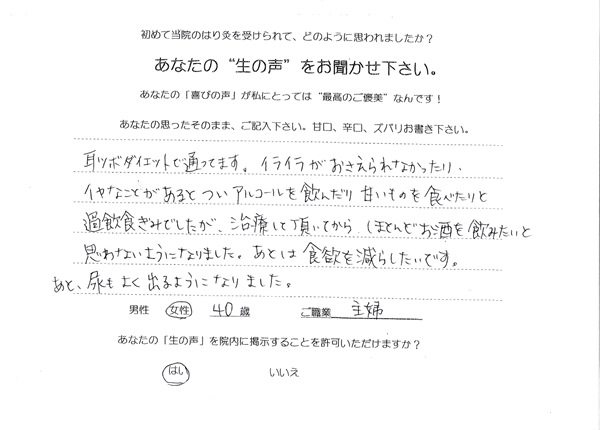 初めて当院のはり灸を受けられて、どのように思われましたか？
あなたの“生の声”をお聞かせ下さい。
あなたの「喜びの声」が私にとっては“最高のご褒美”なんです！
あなたの思ったそのまま、ご記入下さい。甘口、辛口、ズバリお書き下さい。
耳ツボダイエットで通ってます。イライラがおさえられなかったり、
イヤなことがあるとついアルコールを飲んだり甘いものを食べたりと
過飲食ぎみでしたが、治療して頂いてから、ほとんどお酒を飲みたいと
思わないようになりました。あとは食欲を減らしたいです。
あと、尿もよく出るようになりました。
男性 女性 40 歳 ご職業 主婦
あなたの「生の声」を院内に掲示することを許可いただけますか？
はい いいえ